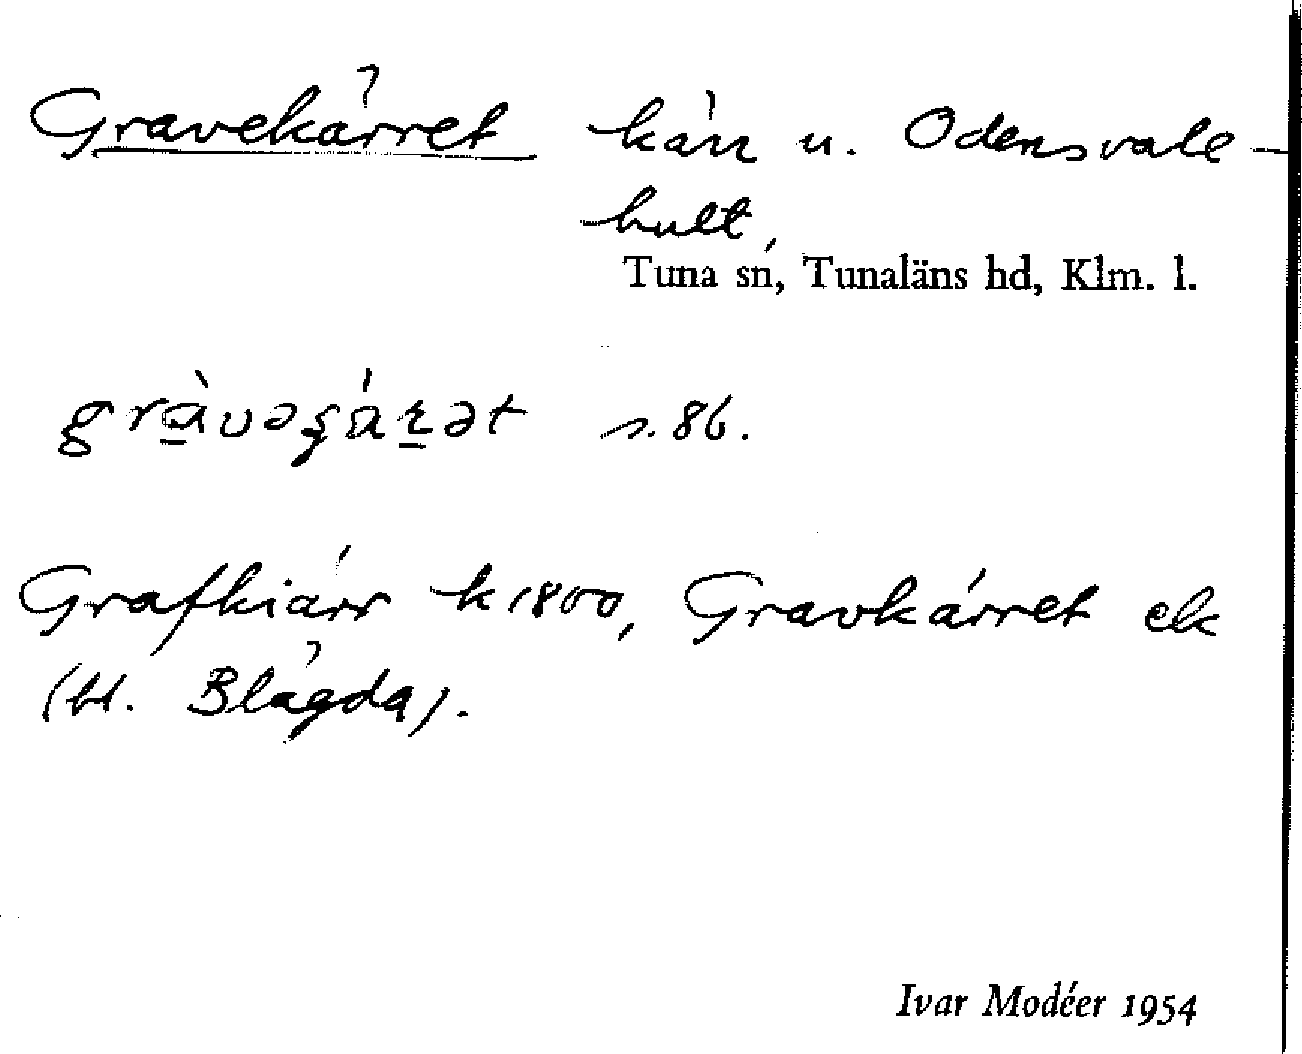 Gravekärret kärr u. Odensvale-
hult,
Tuna sn, Tunaläns hd, Klm. l.
s. 86.
Grafkiärr k 1800, Gravkärret ek
Blågda).
Ivar Modéer 1954